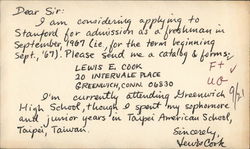 Dear Sir:
I am considering applying to
Stanford for admission as a freshman in
September, 1967 (ie, for the term beginning
Sept., '67). Please send me a catalog & forms:
LEWIS E. COOK
20 INTERVALE PLACE
GREENWICH, CONN. 06830
F+
I'm currently attending Greenwich
High School, though I spent my sophomore
and junior years in Taipei American School,
Taipei, Taiwan.
Sincerely,
Lewis Cook